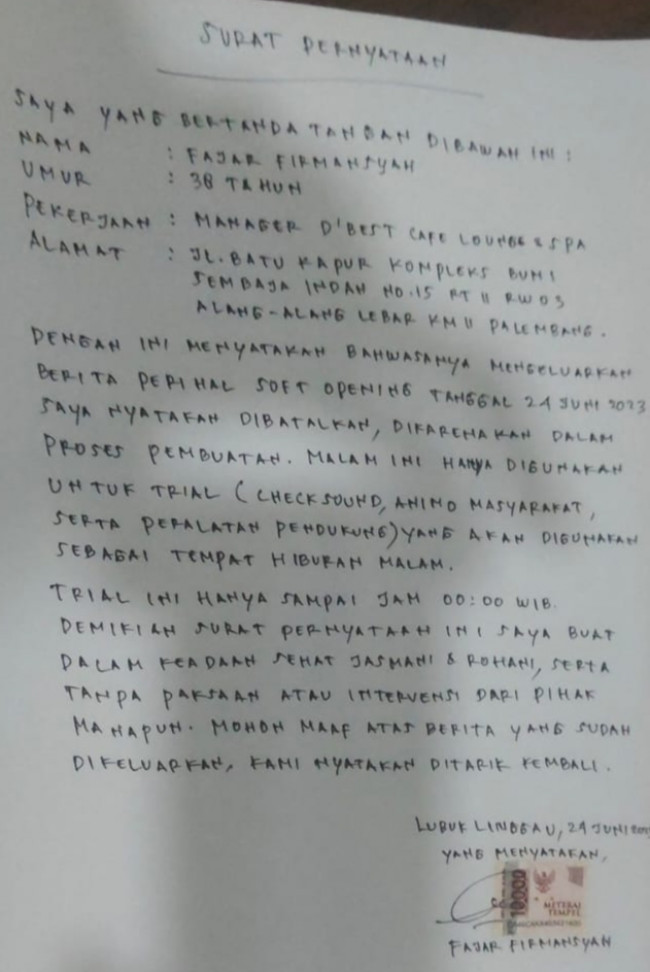 SURAT PERNYATAAN
SAYA YANG BERTANDA TANGAN DIBAWAH INI :
NAMA : FAJAR FIRMANSYAH
UMUR : 38 TAHUN
PEKERJAAN : MANAGER D'BEST CAFE LOUNGE & SPA
ALAMAT : JL. BATU KAPUR KOMPLEKS BUMI
SEMBAJA INDAH NO.15 RT 11 RW 03
ALANG-ALANG LEBAR KM 11 PALEMBANG.
DENGAN INI MENYATAKAN BAHWASANYA MENGELUARKAN
BERITA PERIHAL SOFT OPENING TANGGAL 24 JUNI 2023
SAYA NYATAKAN DIBATALKAN, DIKARENAKAN DALAM
PROSES PEMBUATAN. MALAM INI HANYA DIGUNAKAN
UNTUK TRIAL (CHECKSOUND, ANIMO MASYARAKAT,
SERTA PERALATAN PENDUKUNG) YANG AKAN DIGUNAKAN
SEBAGAI TEMPAT HIBURAN MALAM.
TRIAL INI HANYA SAMPAI JAM 00:00 WIB.
DEMIKIAN SURAT PERNYATAAN INI SAYA BUAT
DALAM KEADAAN SEHAT JASMANI & ROHANI, SERTA
TANPA PAKSAAN ATAU INTERVENSI DARI PIHAK
MANAPUN. MOHON MAAF ATAS BERITA YANG SUDAH
DIKELUARKAN, KAMI NYATAKAN DITARIK KEMBALI.
LUBUK LINGGAU, 24 JUNI
YANG MENYATAKAN,
10000
METERAI
TEMPEL
FAJAR FIRMANSYAH